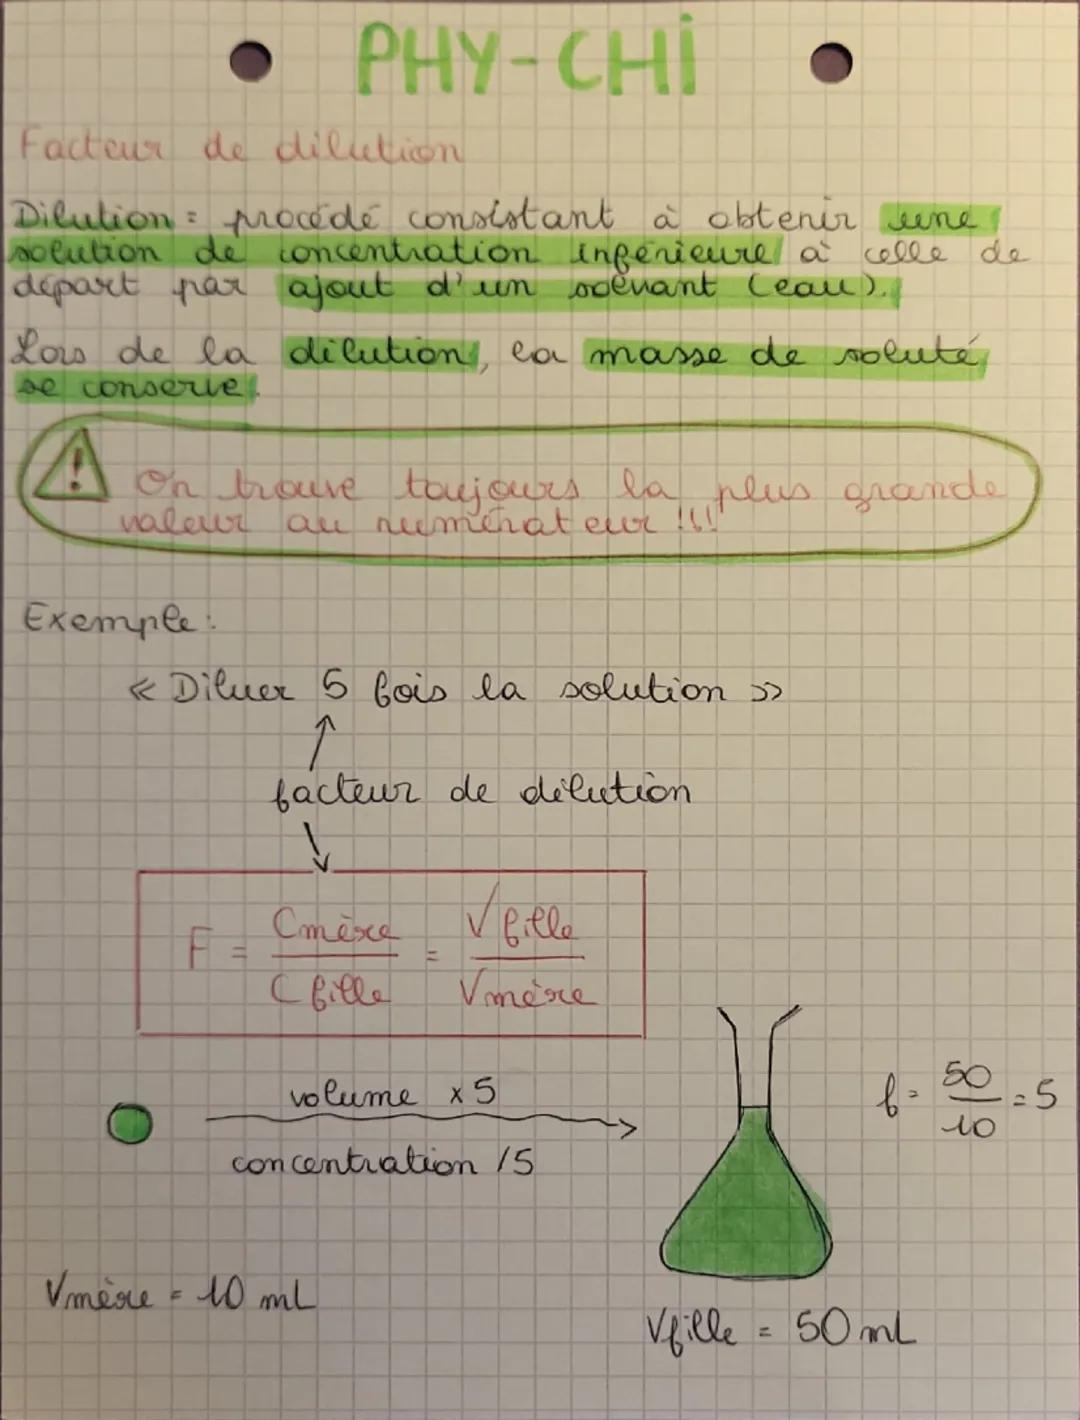 PHY-CHi
Facteur de dilution
Dilution : procédé consistant à obtenir une
solution de concentration inférieure à celle de
départ par ajout d'un solvant (eau).
Lors de la dilution, la masse de soluté
se conserve.
! On trouve toujours la plus grande
valeur au numérateur !!!
Exemple :
« Diluer 5 fois la solution »
facteur de dilution
F = Cmère / Cfille = Vfille / Vmère
volume x5
concentration /5
f = 50 / 10 = 5
Vmère = 10 mL
Vfille = 50 mL